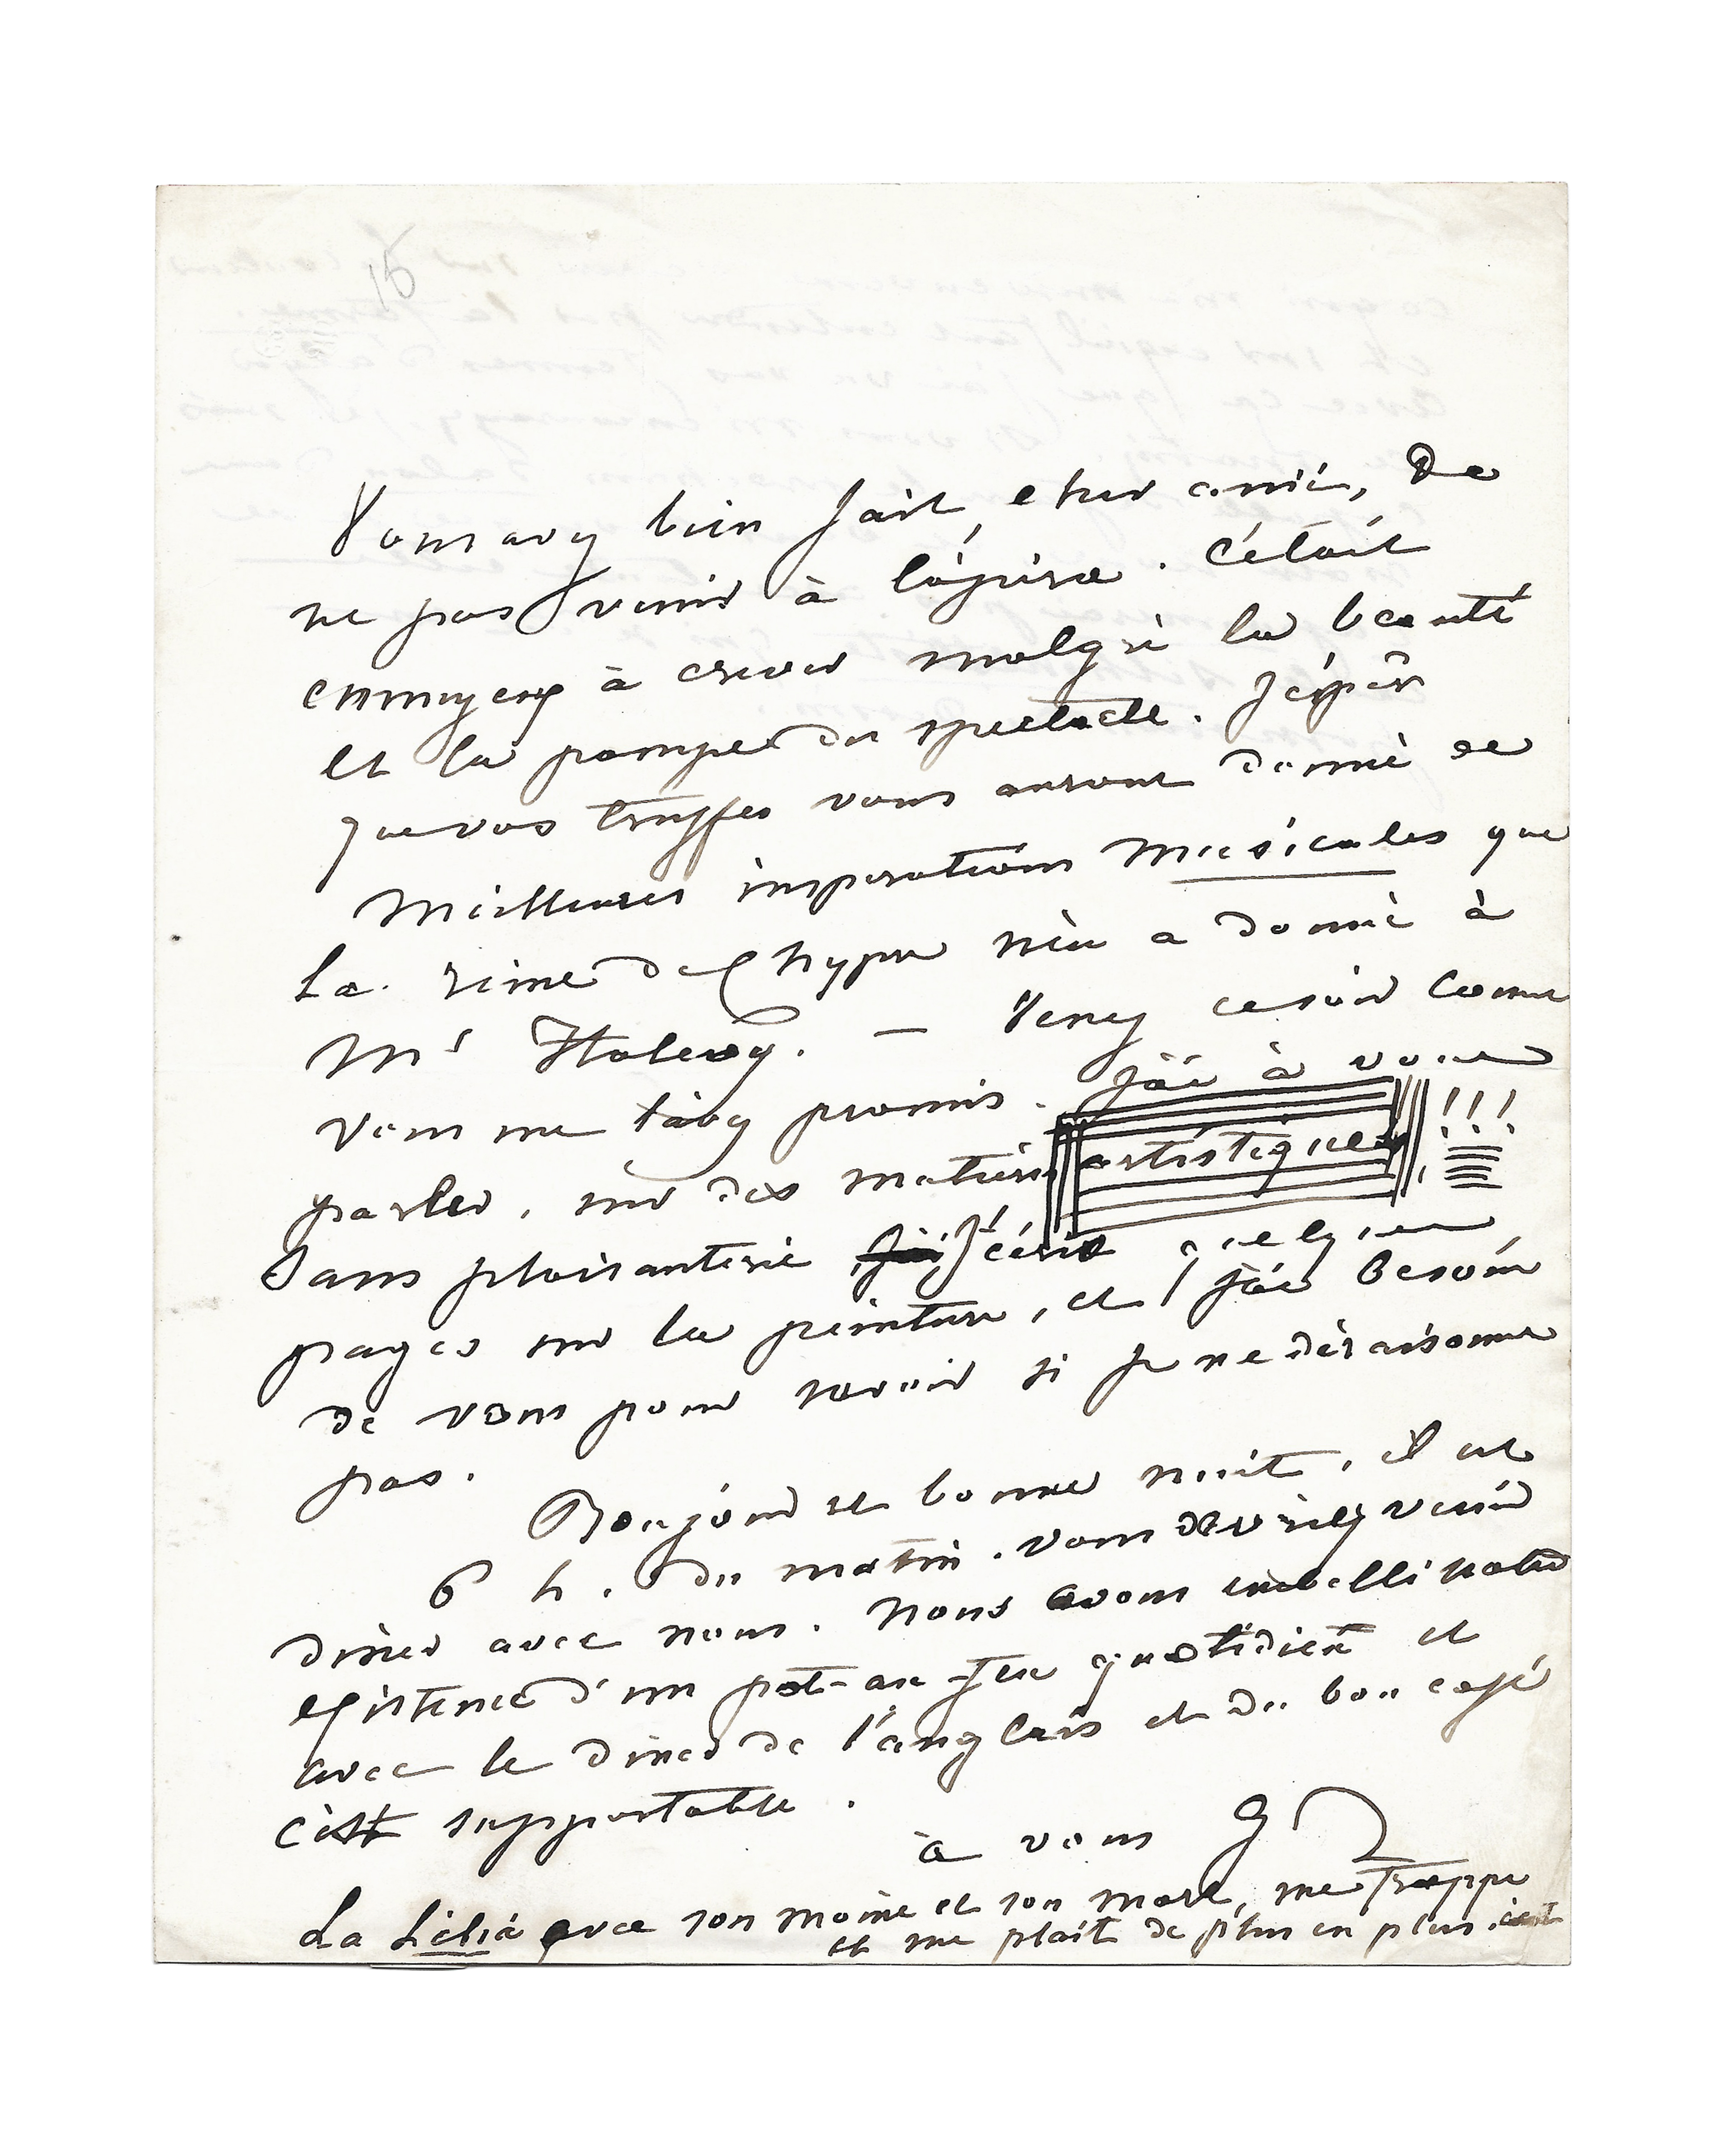 Vous avez bien fait, cher ami, de
ne pas venir à l'opéra. C'était
ennuyeux à crever malgré la beauté
et la pompe du spectacle. J'espère
que vos truffes vous auront donné de
meilleures inspirations musicales que
la reine de Chypre n'en a donné à
Mr Halevy. — Venez ce soir comme
vous me l'avez promis. J'ai à vous
parler, sur des matières artistiques !!!
Sans plaisanterie j'ai écrit quelques
pages sur la peinture, et j'ai besoin
de vous pour savoir si je ne déraisonne
pas.
Bonjour et bonne nuit, il est
6 h. du matin. Vous devriez venir
diner avec nous. Nous avons embelli notre
existence d'un pot-au-feu quotidien et
avec le diner de l'anglais et du bon café
c'est supportable.
à vous G
La Lélia avec son moine et son mort, me frappe
et me plait de plus en plus.